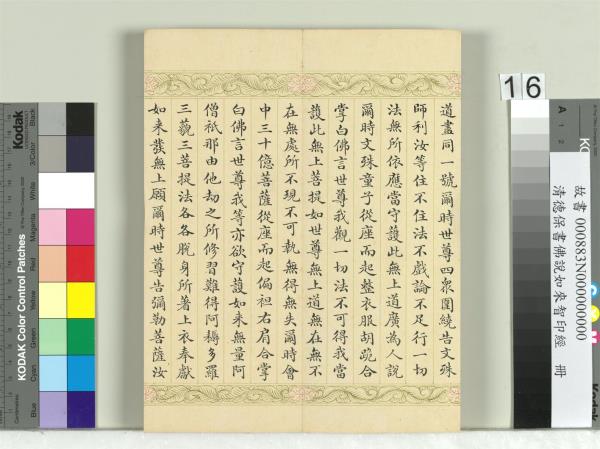 道盡同一號爾時世尊四衆圍繞告文殊
師利汝等住不住法不戲論不足行一切
法無所依應當守護此無上道廣為人說
爾時文殊童子從座而起整衣服胡跪合
掌白佛言世尊我觀一切法不可得我當
護此無上菩提如世尊無上道無在無不
在無處所不現不可執無得無失爾時會
中三十億菩薩從座而起偏袒右肩合掌
白佛言世尊我等亦欲守護如來無量阿
僧祇那由他劫之所修習難得阿耨多羅
三藐三菩提法各各脫身所著上衣奉獻
如來發無上願爾時世尊告彌勒菩薩汝
16
故書 000883N000000000
清德保書佛說如來智印經 冊
Kodak
KODAK Color Control Patches
Blue
Cyan
Green
Yellow
Red
Magenta
White
3/Color
Black
A
1
2